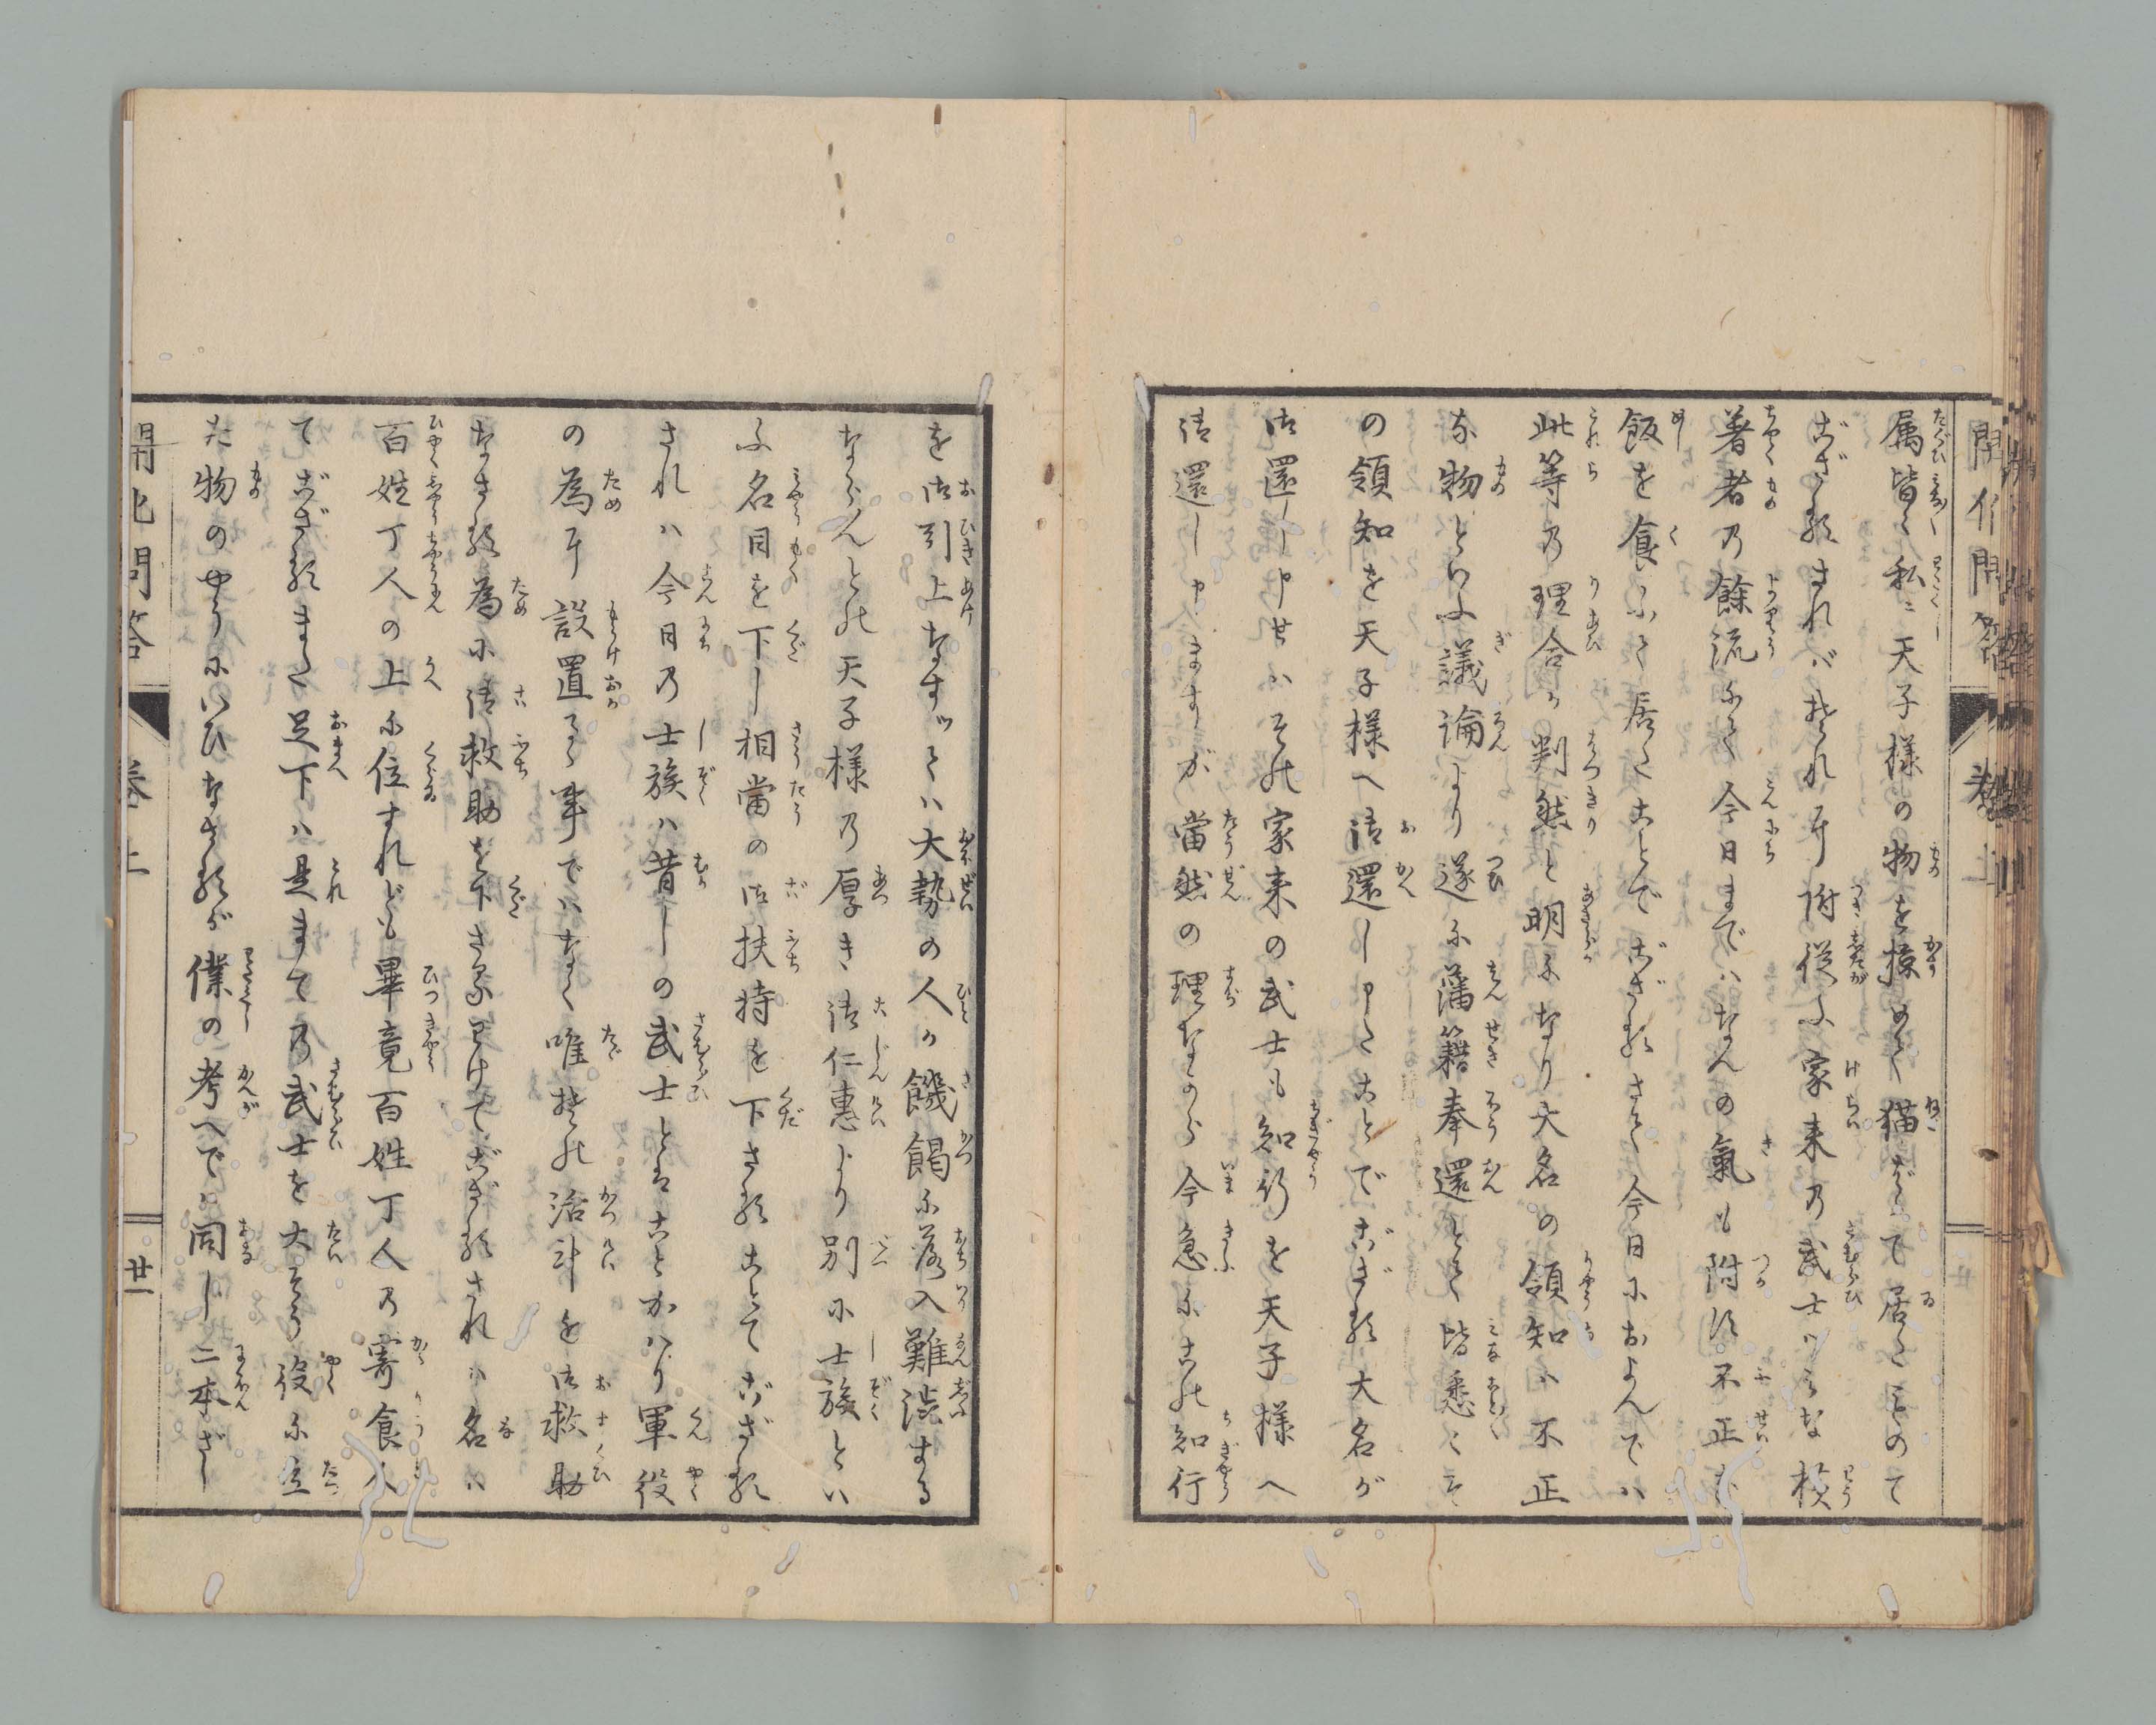 開化問答
巻上
属皆く私ニ天子様の物を掠めて猫ばゞで居たものて
ござるまればそれに附従ふ家来の武士ハみな横
著者の餘流にて今日までハなんの氣も附ず不正な
飯を食ふて居たことでござるさて今日におよんでハ
此等の理合が判然と明になり大名の領知ハ不正
な物といふ議論より遂に藩籍奉還とて皆悉くそ
の領知を天子様へ御還し申たことでござる大名が
御還し申せハその家来の武士も知行を天子様へ
御還し申ますが當然の理ながら今急にその知行
を御引上なすッてハ大勢の人が饑餲に落入難渋する
ならんとの天子様の厚き御仁惠より別に士族とい
ふ名目を下し相當の御扶持を下さることでござる
されハ今日の士族ハ昔しの武士とはことかハり軍役
の為に設置るゝ事でハなく唯その活計を御救助
なさる為に御救助を下さるわけでござるされハ名ハ
百姓丁人の上に位すれども畢竟百姓丁人の寄食人
てござるまた足下ハ是まての武士を大そう役に立
た物のやうにいひなさるが僕の考へでハ同し二本ざし
開化問答
巻上
廿一